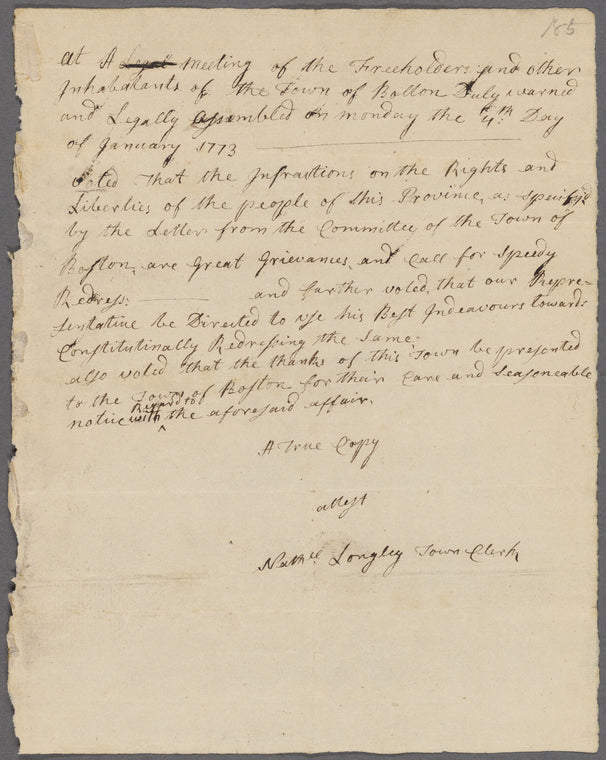 185
at A Legal meeting of the Freeholders and other
Inhabatants of the Town of Bolton Duly warned
and Legally assembled on monday the 4th Day
of January 1773
Voted That the Infractions on the Rights and
Liberties of the people of this Province, as specifyd
by the Letter from the Committee of the Town of
Boston, are Great Grievances, and Call for Speedy
Redress: and further voted, that our Repre-
sentative be Directed to use his Best Indeavours towards
Constitutinally Redressing the Same.
also voted That the thanks of this Town be presented
to the Town of Boston for their Care and Seasoneable
notice with Regard to the aforesaid affair.
A True Copy
attest
Nathel Longley Town Clerk